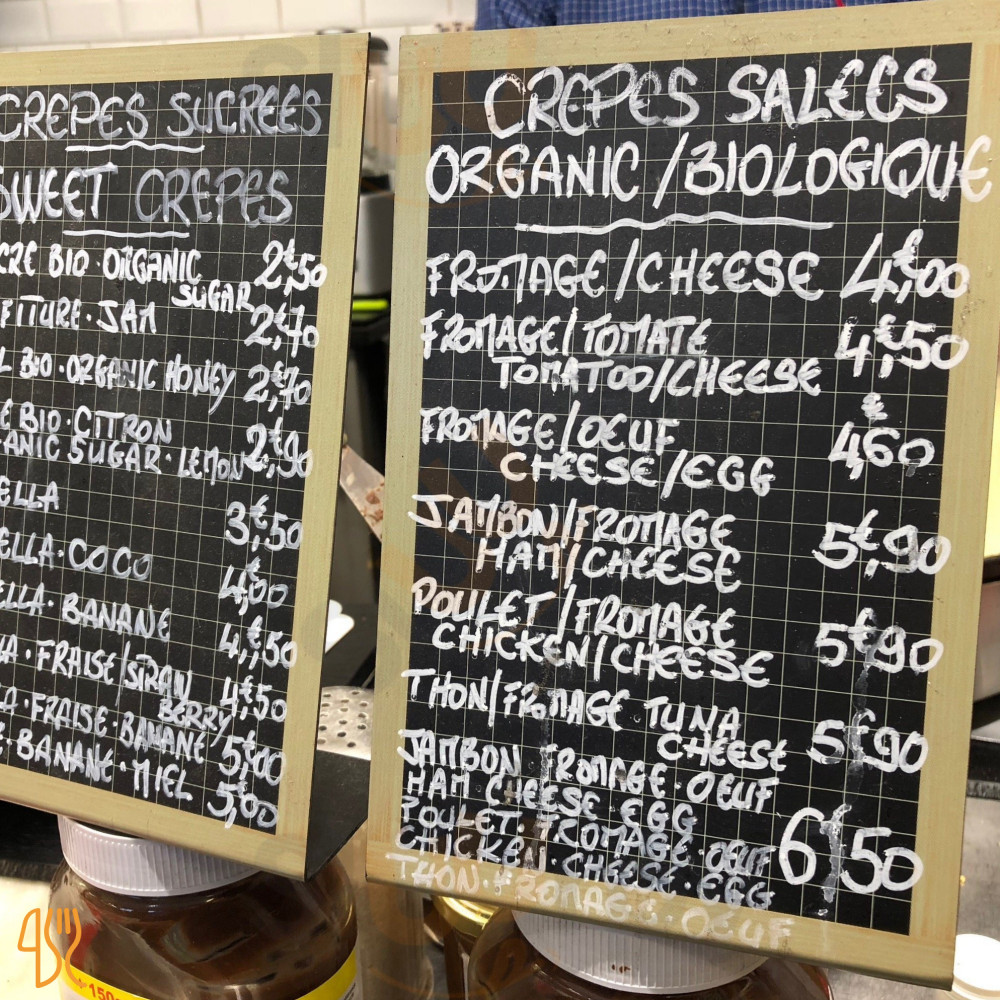 CREPES SUCREES
SWEET CREPES
CRE BIO · ORGANIC SUGAR 2€,50
FITURE · JAM 2€,70
L BIO · ORGANIC HONEY 2€,70
E BIO · CITRON
ANIC SUGAR · LEMON 2€,90
ELLA 3€,50
ELLA · COCO 4,00
ELLA · BANANE 4€,50
LA · FRAISE/STRAW BERRY 4€,50
A · FRAISE · BANANE 5€,00
E · BANANE · MIEL 5,00
CREPES SALEES
ORGANIC / BIOLOGIQUE
FROMAGE / CHEESE 4€,00
FROMAGE / TOMATE 4€,50
TOMATOO/CHEESE
FROMAGE / OEUF 4€,60
CHEESE / EGG
JAMBON/FROMAGE 5€,90
HAM/CHEESE
POULET/FROMAGE 5€,90
CHICKEN/CHEESE
THON/FROMAGE TUNA
CHEESE 5€,90
JAMBON FROMAGE · OEUF
HAM CHEESE EGG
POULET · FROMAGE · OEUF 6,50
CHICKEN · CHEESE · EGG
THON · FROMAGE · OEUF
150